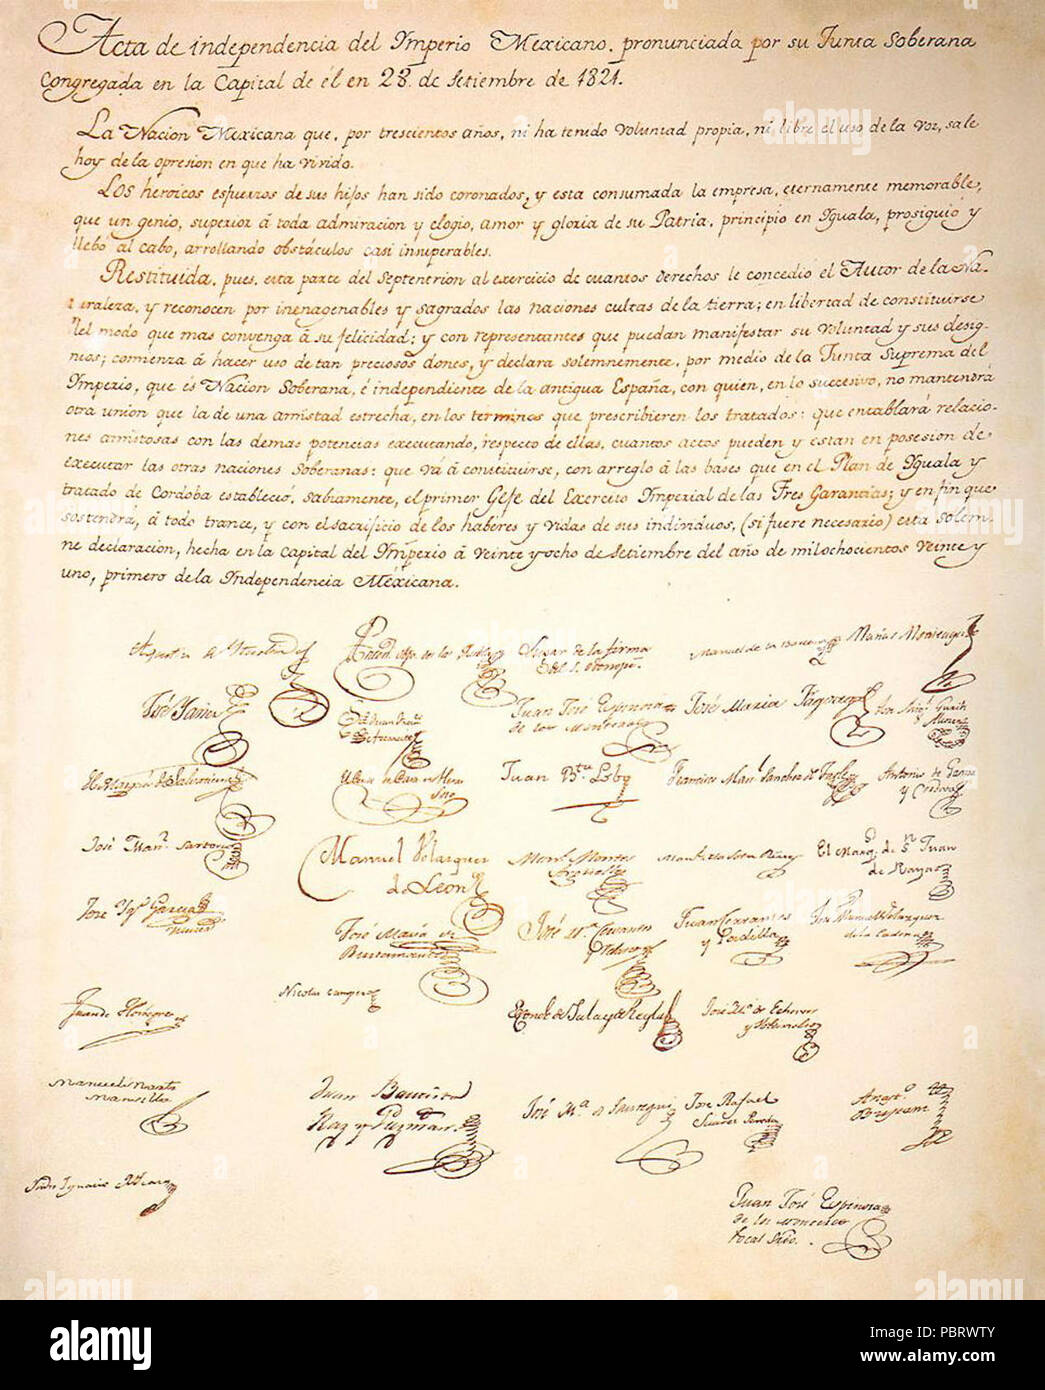 Acta de independencia del Ymperio Mexicano, pronunciada por su Junta Soberana
Congregada en la Capital de él en 28 de Setiembre de 1821.
La Nacion Mexicana que, por trescientos años, ni ha tenido voluntad propia, ni libre el uso de la voz, sale
hoy de la opresion en que ha vivido.
Los heroicos esfuerzos de sus hijos han sido coronados, y esta consumada la empresa, eternamente memorable,
que un genio, superior á toda admiracion y elogio, amor y gloria de su Patria, principió en Iguala, prosiguió y
llebó al cabo, arrollando obstáculos casi insuperables.
Restituida, pues, esta parte del Septentrion al exercicio de cuantos derechos le concedió el Autor de la Na-
turaleza, y reconocen por inenagenables y sagrados las naciones cultas de la tierra; en libertad de constituirse
del modo que mas convenga á su felicidad; y con representantes que puedan manifestar su voluntad y sus desig-
nios; comienza á hacer uso de tan preciosos dones, y declara solemnemente, por medio de la Junta Suprema del
Ymperio, que és Nacion Soberana, é independiente de la antigua España, con quien, en lo succesivo, no mantendrá
otra union que la de una amistad estrecha, en los terminos que prescribieren los tratados: que entablará relacio-
nes amistosas con las demas potencias executando, respecto de ellas, cuantos actos pueden y estan en posesion de
executar las otras naciones Soberanas: que vá á constituirse, con arreglo á las bases que en el Plan de Yguala y
tratado de Cordoba estableció, sabiamente, el primer Gefe del Exercito Ymperial de las Tres Garancias; y en fin que
sostendrá, á todo trance, y con el sacrificio de los habéres y vidas de sus individuos, (si fuere necesario) esta solem-
ne declaracion, hecha en la Capital del Ymperio á veinte y ocho de Setiembre del año de mil ochocientos veinte y
uno, primero de la Yndependencia Mexicana.
Lugar de la firma
Manuel de la Barcena
Matias Monteagudo
José Yañez
Juan José Espinosa
de los Monteros
José Maria Fagoaga
Juan Bta. Lobo
Francisco Manl. Sanchez de Tagle
Antonio de Gama
y Cordova
José Manl. Sartorio
Manuel Velazquez
de Leon
Manl. Montes
Argüelles
El Marqs. de Sn. Juan
de Rayas
José Ygn. Garcia
José Maria de
Bustamante
José Ma. Cervantes
y Velasco
Juan Cervantes
y Padilla
José Manuel Velazquez
de la Cadena
Juan de Horbegoso
Nicolas Campero
José Ma. de Echevers
y Valdivielso
Manuel Martz
Mansilla
Juan Bautista
Raz y Guzman
José Ma. de Jauregui
José Rafael
Suarez Pereda
Anasto.
Bustam
Ysidro Ygnacio
Juan José Espinosa
de los Monteros
Vocal Srio.
alamy
PBRWTY
www.alamy.com